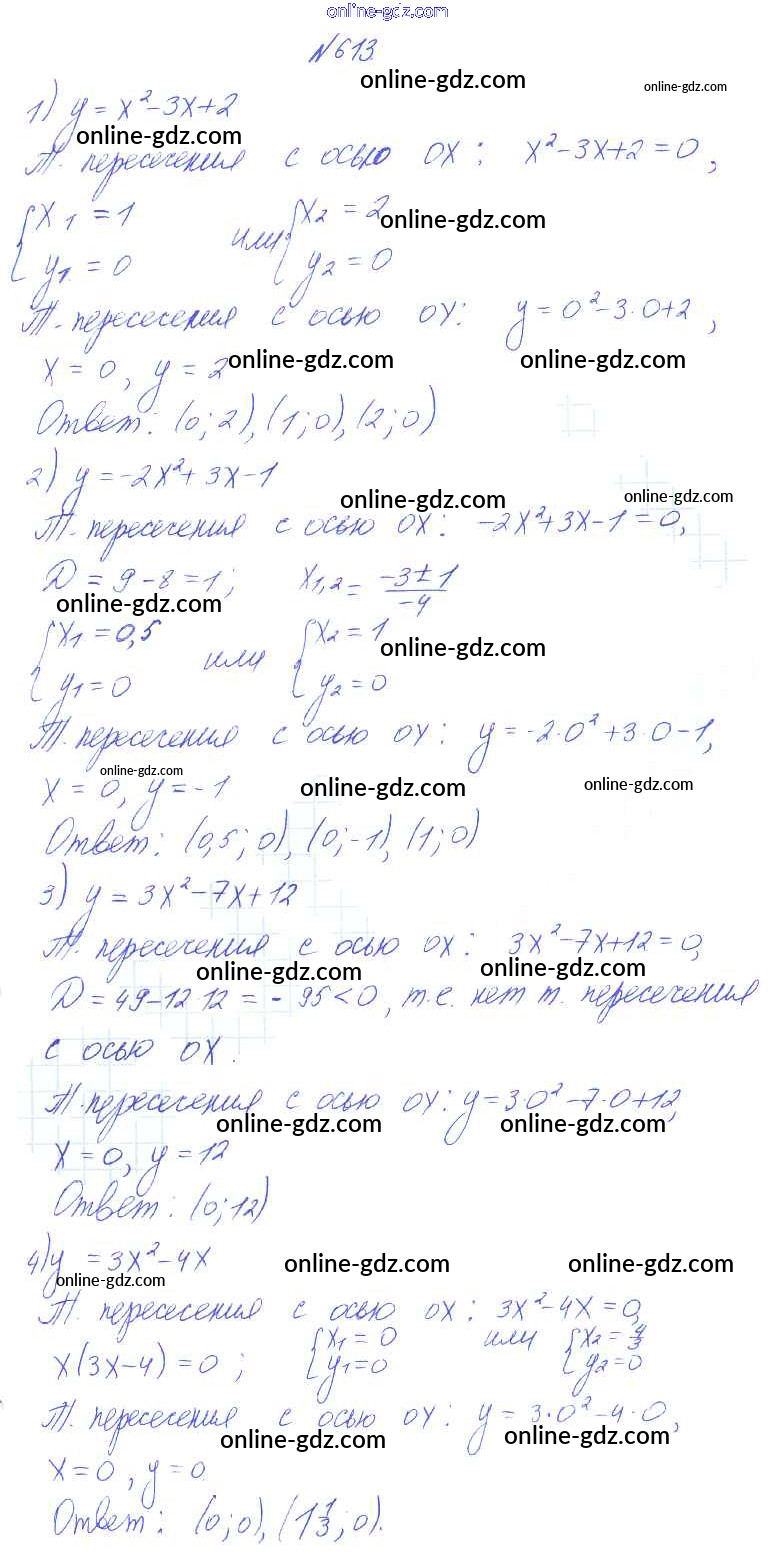 online-gdz.com
№613.
online-gdz.com online-gdz.com
1) y = x² - 3x + 2
online-gdz.com
Т. пересечения с осью OX: x² - 3x + 2 = 0,
{x₁ = 1 или {x₂ = 2 online-gdz.com
y₁ = 0 y₂ = 0
Т. пересечения с осью OY: y = 0² - 3·0 + 2,
x = 0, y = 2 online-gdz.com online-gdz.com
Ответ: (0; 2), (1; 0), (2; 0)
2) y = -2x² + 3x - 1
online-gdz.com online-gdz.com
Т. пересечения с осью OX: -2x² + 3x - 1 = 0,
D = 9 - 8 = 1; x₁,₂ = (-3 ± 1)/-4
online-gdz.com
{x₁ = 0,5 или {x₂ = 1 online-gdz.com
y₁ = 0 y₂ = 0
Т. пересечения с осью OY: y = -2·0² + 3·0 - 1,
online-gdz.com
x = 0, y = -1 online-gdz.com online-gdz.com
Ответ: (0,5; 0), (0; -1), (1; 0)
3) y = 3x² - 7x + 12
Т. пересечения с осью OX: 3x² - 7x + 12 = 0,
online-gdz.com online-gdz.com
D = 49 - 12·12 = -95 < 0, т.е. нет т. пересечения
с осью OX.
Т. пересечения с осью OY: y = 3·0² - 7·0 + 12,
online-gdz.com online-gdz.com
x = 0, y = 12
Ответ: (0; 12)
4) y = 3x² - 4x online-gdz.com online-gdz.com
online-gdz.com
Т. пересечения с осью OX: 3x² - 4x = 0,
x(3x - 4) = 0; {x₁ = 0 или {x₂ = 4/3
y₁ = 0 y₂ = 0
Т. пересечения с осью OY: y = 3·0² - 4·0,
online-gdz.com online-gdz.com
x = 0, y = 0
Ответ: (0; 0), (1 1/3; 0).